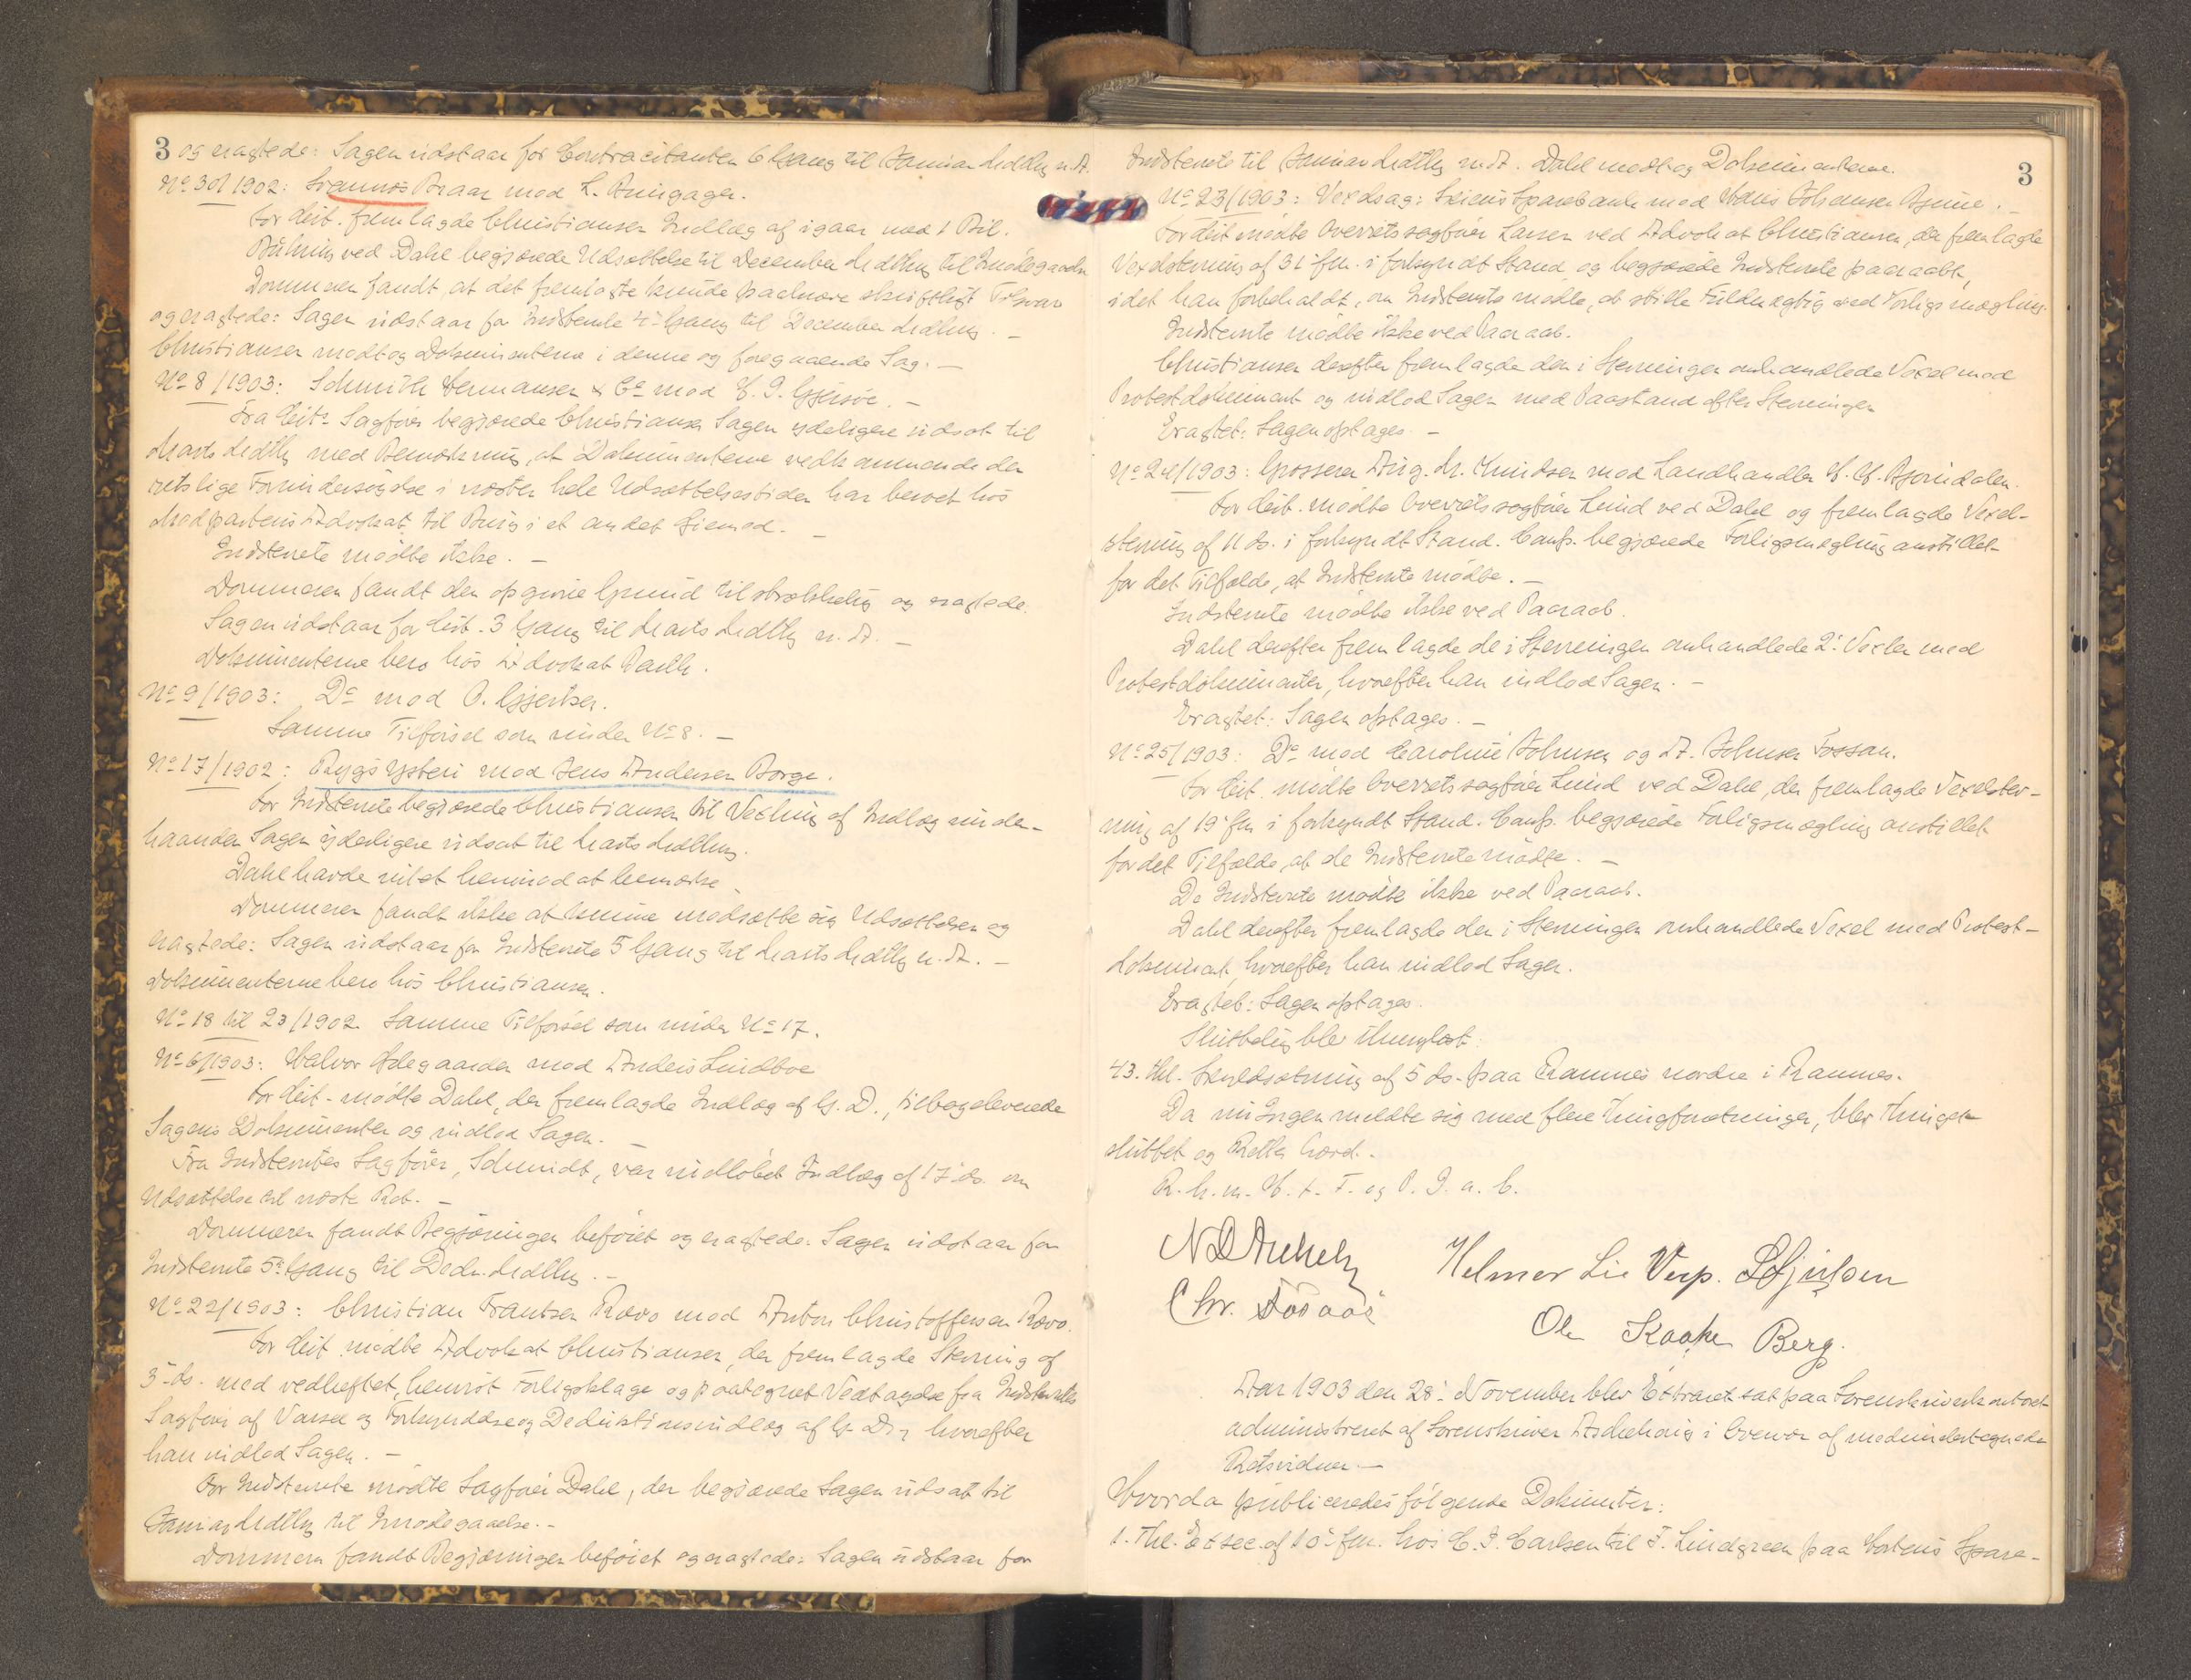 3 og eragtede: Sagen udstaar for Contracitanten 6 Gang til Januar Mdthg n. A.
No 30/1902: Braar mod L. Ringager.
For Citt. fremlagde Christiansen Indlæg af igaar med 1 Bil.
ved Dahl begjærede Udsættelse til December Mdthg til Imødegaaelse
Dommeren fandt, at det fremlagte kunde paakræve skriftligt Tilsvar
og eragtede: Sagen udstaar for Indstevnte 4de Gang til December Mdthg. —
Christiansen modtog Dokumenterne i denne og foregaaende Sag. —
No 8/1903: Schmith Hermansen & Co mod H. J. Gjersøe. —
Fra Cits Sagfører begjærede Christiansen Sagen ydeligere udsat til
Marts Mdthg med Bemærkning, at Dokumenterne vedkommende den
retslige Forundersøgelse i næsten hele Udsættelsestiden har beroet hos
Modpartens Advokat til Brug i et andet Øiemed. —
Indstevnte mødte ikke. —
Dommeren fandt den opgivne Grund tilstrækkelig og eragtede:
Sagen udstaar for Citt. 3 Gang til Marts Mdthg n. A. —
Dokumenterne bero hos Advokat
No 9/1903: Do mod O. Gjertsen.
Samme Tilførsel som under No 8. —
No 17/1902: Rygs Ysteri mod Jens Andersen Borge.
For Indstevnte begjærede Christiansen til Vexling af Indlæg under-
haanden Sagen yderligere udsat til Marts Mdthg.
Dahl havde intet herimod at bemærke.
Dommeren fandt ikke at kunne modsætte sig Udsættelsen og
eragtede: Sagen udstaar for Indstevnte 5 Gang til Marts Mdthg n. A. —
Dokumenterne bero hos Christiansen.
No 18 til 23/1902. Samme Tilførsel som under No 17.
No 6/1903: Halvor Ødegaarden mod Anders Lindboe
For Citt. mødte Dahl, der fremlagde Indlæg af G. D., tilbageleverede
Sagens Dokumenter og indlod Sagen. —
Fra Indstevntes Sagfører, Schmidt, var indløbet Indlæg af 17 ds. om
Udsættelse til næste Ret. —
Dommeren fandt Begjæringen beføiet og eragtede: Sagen udstaar for
Indstevnte 5te Gang til Decbr. Mdthg. —
No 22/1903: Christian Frantsen Rævø mod Anton Christoffersen Rævø.
For Citt. mødte Advokat Christiansen, der fremlagde Stevning af
3 ds. med vedheftet, henvist Forligsklage og paategnet Vedtagelse fra Indstevntes
Sagfører af Varsel og Forkyndelse og Deduktionsindlæg af G. D., hvorefter
han indlod Sagen. —
For Indstevnte mødte Sagfører Dahl, der begjærede Sagen udsat til
Januar Mdthg til Imødegaaelse. —
Dommeren fandt Begjæringen beføiet og eragtede: Sagen udstaar for
3
Indstevnte til Januar Mdthg n. A. Dahl modtog Dokumenterne.
No 23/1903: Vexelsag: Skiens Sparebank mod Hans Johansen
For Citt mødte Overretssagfører Larsen ved Advokat Christiansen, der fremlagde
Vexelstevning af 31 fm. i forkyndt Stand og begjærede Indstevnte paaraabt,
idet han forbeholdt, om Indstevnte mødte, at stille Fuldmægtig ved Forligsmægling.
Indstevnte mødte ikke ved Paaraab.
Christiansen derefter fremlagde den i Stevningen omhandlede Vexel med
Protestdokument og indlod Sagen med Paastand efter Stevningen
Eragtet: Sagen optages. —
No 24/1903: Grosserer Aug. M. Knudsen mod Landhandler H. H. Bjorndalen.
For Citt. mødte Overretssagfører Lund ved Dahl og fremlagde Vexel-
stevning af 11 ds. i forkyndt Stand. Comp. begjærede Forligsmægling anstillet
for det Tilfælde, at Indstevnte mødte. —
Indstevnte mødte ikke ved Paaraab.
Dahl derefter fremlagde de i Stevningen omhandlede 2 Vexler med
Protestdokumenter, hvorefter han indlod Sagen. —
Eragtet: Sagen optages. —
No 25/1903: Do mod Caroline Johnsen og A. Johnsen Fossan.
For Citt. mødte Overretssagfører Lund ved Dahl, der fremlagde Vexelstev-
ning af 19 fm i forkyndt Stand. Comp. begjærede Forligsmægling anstillet
for det Tilfælde, at de Indstevnte mødte. —
De Indstevnte mødte ikke ved Paaraab.
Dahl derefter fremlagde den i Stevningen omhandlede Vexel med Protest-
dokument, hvorefter han indlod Sagen.
Eragtet: Sagen optages.
Sluttelig blev thinglæst:
43. Thl. Skyldsætning af 5 ds. paa Ramnes nordre i Ramnes.
Da nu Ingen meldte sig med flere Thingforretninger, blev Thinget
sluttet og Retten hævet. —
R. h. m. H. t. T. og P. J. a. C.
Helmer Lie Verp.
Chr.
Ole Kaaken Berg.
Aar 1903 den 28 November blev Extraret sat paa Sorenskriverkontoret
administreret af Sorenskriver Aschehoug i Overvær af medundertegnede
Retsvidner. —
Hvorda publiceredes følgende Dokumenter:
1. Thl. Exsec. af 10 fm. hos C. J. Carlsen til F. Lindgreen paa Hortens Spare-